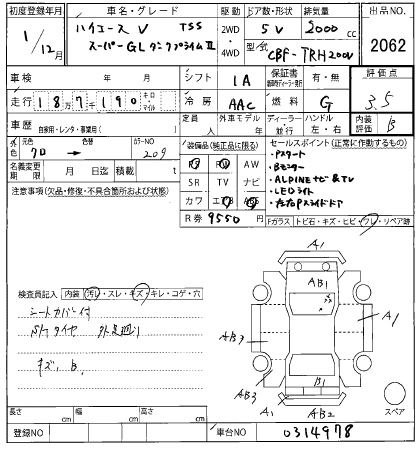 初度登録年月 車名・グレード 駆動 ドア数・形状 排気量 出品NO.
1/12月 ハイエース V TSS 2WD 5V 2000cc 2062
スーパーGL ダークプライムⅡ 4WD 型式 CBF-TRH200V
車検 年 月 シフト IA 保証書 有・無 評価点
走行 187190 キロ・マイル 冷房 AAC 燃料 G 3.5
車歴 自家用・レンタ・事業用( ) 定員 人 外車モデル 年 ディーラー・並行 ハンドル 左・右 内装 B
外色 元色 クロ 色替 カラーNO 209
装備品(純正品に限る) セールスポイント(正常に作動するもの)
名義変更期限 月 日迄 積載 t
AW
SR TV ナビ
カワ エアB
R券 9550円
・Pスタート
・Bモニター
・ALPINEナビ&TV
・LEDライト
・左右Pスライドドア
注意事項(欠品・修復・不具合箇所および状態)
Fガラス トビ石・キズ・ヒビ・ワレ・リペア跡
検査員記入 内装 汚れ・スレ・キズ・キレ・コゲ・穴
シートカバー付
キズ、B
A1
AB1
AB3
A1
AB3
B1
A1
AB2
スペア
長さ cm 幅 cm 高さ cm
登録NO 車台NO 0314978